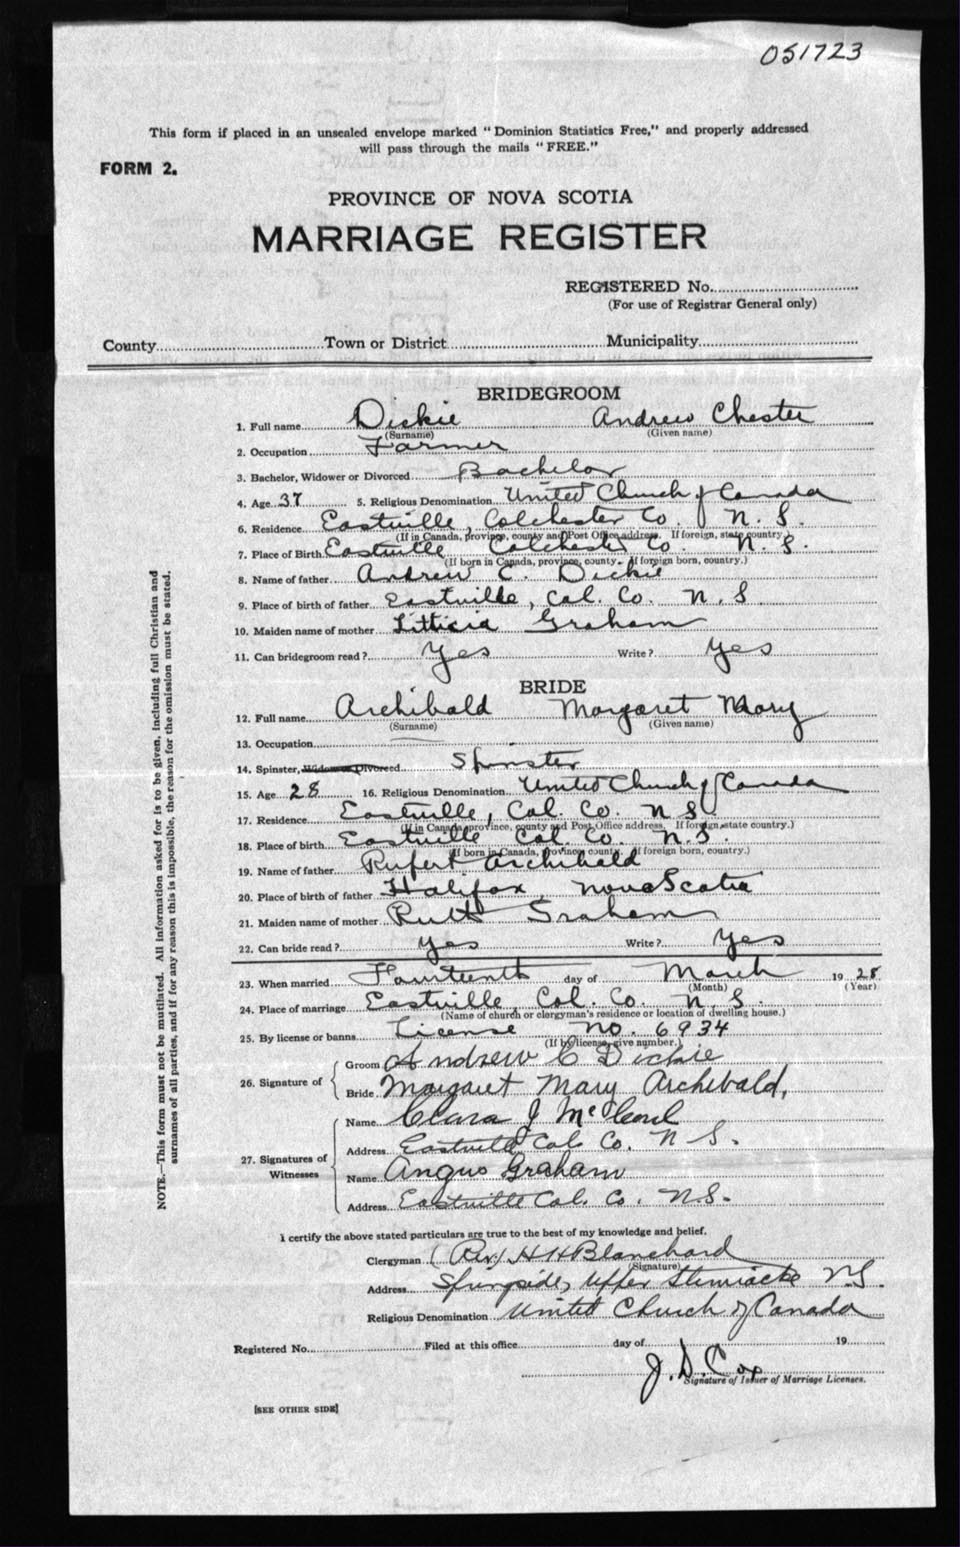 051723
This form if placed in an unsealed envelope marked "Dominion Statistics Free," and properly addressed
will pass through the mails "FREE."
FORM 2.
PROVINCE OF NOVA SCOTIA
MARRIAGE REGISTER
REGISTERED No.
(For use of Registrar General only)
County Town or District Municipality
BRIDEGROOM
1. Full name Dickie Andrew Chester
(Surname) (Given name)
2. Occupation Farmer
3. Bachelor, Widower or Divorced Bachelor
4. Age 37 5. Religious Denomination United Church of Canada
6. Residence Eastville, Colchester Co. N. S.
(If in Canada, province, county and Post Office address. If foreign, state country.)
7. Place of Birth Eastville Colchester Co. N. S.
(If born in Canada, province, county. If foreign born, country.)
8. Name of father Andrew C. Dickie
9. Place of birth of father Eastville, Col. Co. N. S
10. Maiden name of mother Litticia Graham
11. Can bridegroom read? Yes Write? Yes
BRIDE
12. Full name Archibald Margaret Mary
(Surname) (Given name)
13. Occupation
14. Spinster, Widow or Divorced Spinster
15. Age 28 16. Religious Denomination United Church of Canada
17. Residence Eastville, Col. Co. N S.
(If in Canada, province, county and Post Office address. If foreign, state country.)
18. Place of birth Eastville Col. Co. N. S.
(If born in Canada, province, county. If foreign born, country.)
19. Name of father Rufert Archibald
20. Place of birth of father Halifax, Nova Scotia
21. Maiden name of mother Ruth Graham
22. Can bride read? Yes Write? Yes
23. When married Fourteenth day of March 19 28
(Month) (Year)
24. Place of marriage Eastville, Col. Co. N. S.
(Name of church or clergyman's residence or location of dwelling house.)
25. By license or banns License No. 6934
(If by license, give number.)
26. Signature of Groom Andrew C Dickie
Bride Margaret Mary Archibald,
27. Signatures of Witnesses Name Clara J McLeod
Address Eastville Col. Co. N S.
Name Angus Graham
Address Eastville Col. Co. N.S.
I certify the above stated particulars are true to the best of my knowledge and belief.
Clergyman (Rev) H H Blanchard
(Signature)
Address Springside, Upper Stewiacke N.S.
Religious Denomination United Church of Canada
Registered No. Filed at this office day of 19
J. D. Cox
Signature of Issuer of Marriage Licenses.
[SEE OTHER SIDE]
NOTE.—This form must not be mutilated. All information asked for is to be given, including full Christian and
surnames of all parties, and if for any reason this is impossible, the reason for the omission must be stated.